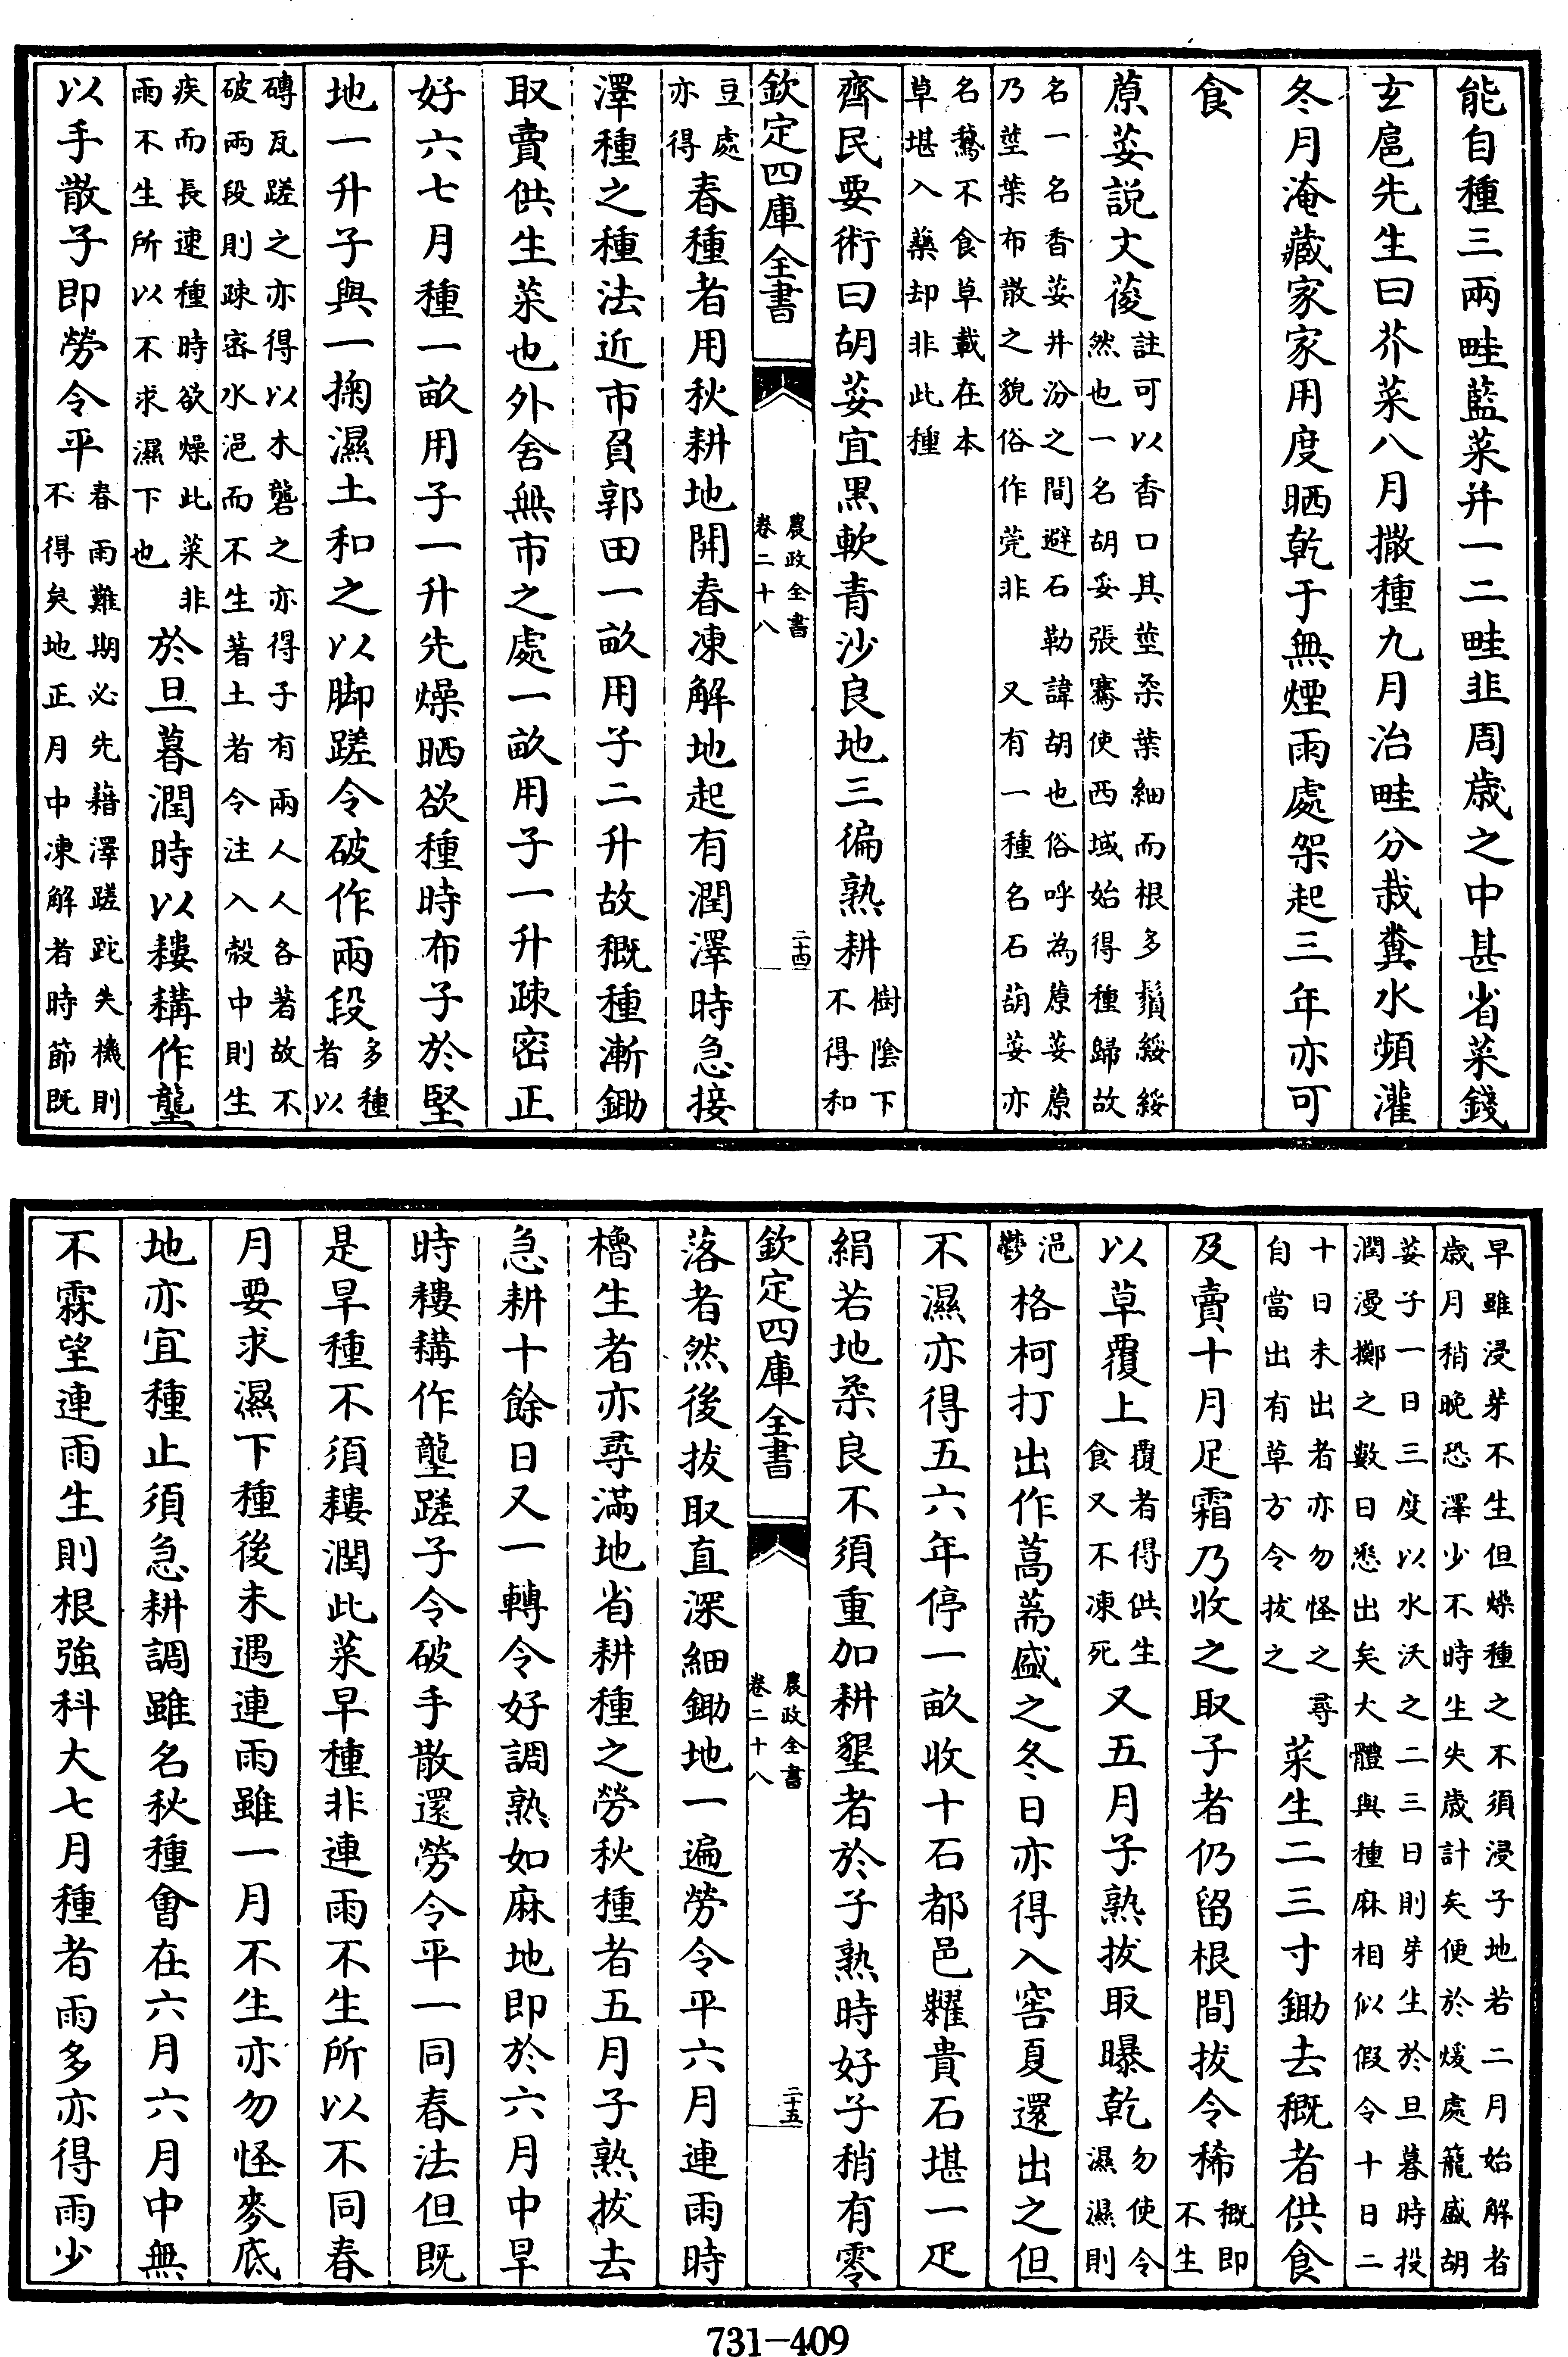 能自種三兩畦藍菜并一二畦韭周歲之中甚省菜錢
玄扈先生曰芥菜八月撒種九月治畦分栽糞水頻灌
冬月淹藏家家用度晒乾于無煙雨處架起三年亦可
食
蒝荽說文葰註可以香口其莖柔葉細而根多鬚綏綏然也一名胡荽張騫使西域始得種歸故
名一名香荽并汾之間避石勒諱胡也俗呼為蒝荽蒝乃莖葉布散之貌俗作莞非 又有一種名石葫荽亦
名鵝不食草載在本草堪入藥却非此種
齊民要術曰胡荽宜黒軟青沙良地三徧熟耕樹陰下不得和
欽定四庫全書
農政全書
卷二十八
二十四
豆處亦得春種者用秋耕地開春凍解地起有潤澤時急接
澤種之種法近市負郭田一畝用子二升故穊種漸鋤
取賣供生菜也外舍無市之處一畝用子一升疎密正
好六七月種一畝用子一升先燥晒欲種時布子於堅
地一升子與一掬濕土和之以脚蹉令破作兩段多種者以
磚瓦蹉之亦得以木礱之亦得子有兩人人各著故不破兩段則疎宻水浥而不生著土者令注入殼中則生
疾而長速種時欲燥此菜非雨不生所以不求濕下也於旦暮潤時以耬耩作壟
以手散子即勞令平春雨難期必先藉澤蹉跎失機則不得矣地正月中凍解者時節既
早雖浸芽不生但燥種之不須浸子地若二月始解者歲月稍晚恐澤少不時生失歲計矣便於煖處籠盛胡
荽子一日三度以水沃之二三日則芽生於旦暮時投潤漫擲之數日悉出矣大體與種麻相似假令十日二
十日未出者亦勿怪之尋自當出有草方令拔之菜生二三寸鋤去穊者供食
及賣十月足霜乃收之取子者仍留根間拔令稀穊即不生
以草覆上覆者得供生食又不凍死又五月子熟拔取曝乾勿使令濕濕則
浥鬱格柯打出作蒿篅盛之冬日亦得入窖夏還出之但
不濕亦得五六年停一畝收十石都邑糶貴石堪一疋
絹若地柔良不須重加耕墾者於子熟時好子稍有零
欽定四庫全書
農政全書
卷二十八
二十五
落者然後拔取直深細鋤地一遍勞令平六月連雨時
穭生者亦尋滿地省耕種之勞秋種者五月子熟拔去
急耕十餘日又一轉令好調熟如麻地即於六月中旱
時耬耩作壟蹉子令破手散還勞令平一同春法但既
是旱種不須耬潤此菜旱種非連雨不生所以不同春
月要求濕下種後未遇連雨雖一月不生亦勿怪麥底
地亦宜種止須急耕調雖名秋種會在六月六月中無
不霖望連雨生則根強科大七月種者雨多亦得雨少
731-409